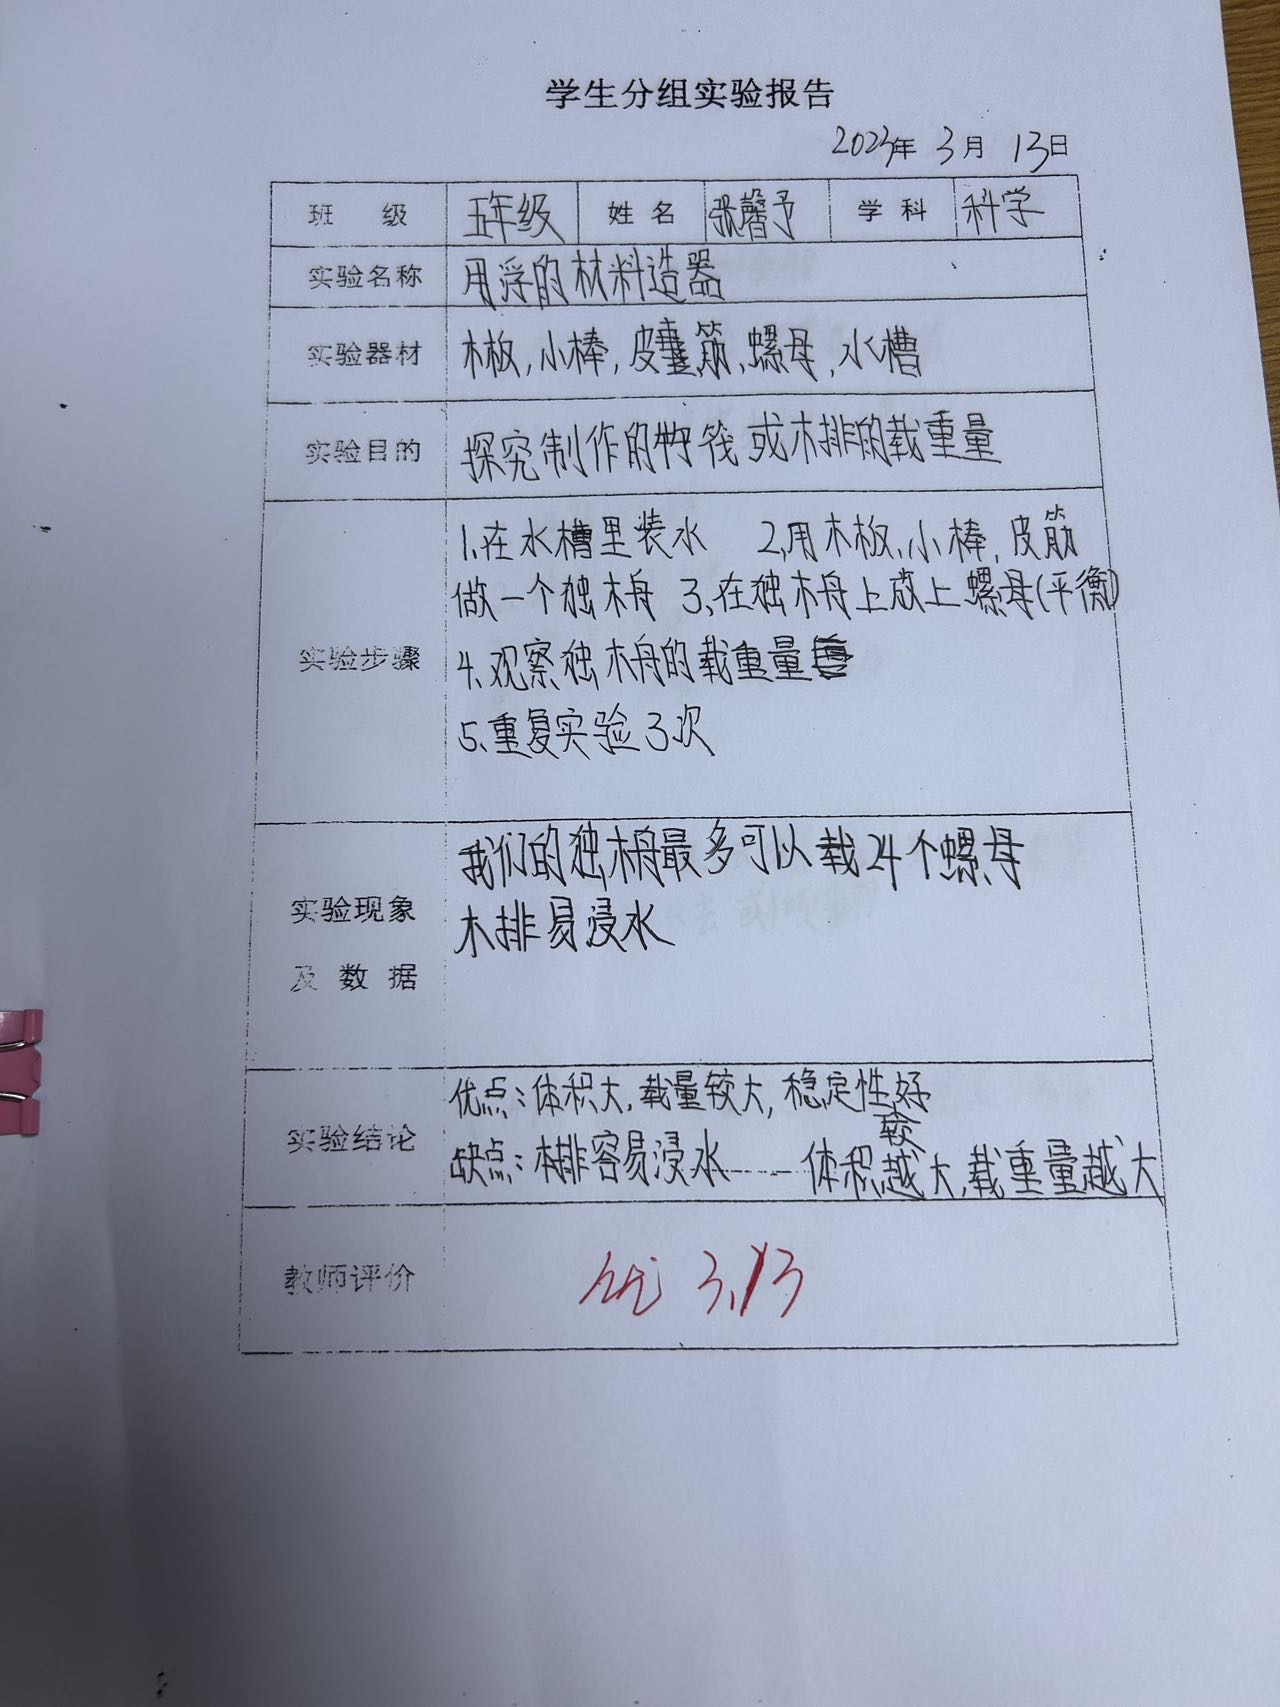 学生分组实验报告
2023年 3月 13日
班级 五年级 姓名 张馨予 学科 科学
实验名称 用浮的材料造器
实验器材 木板,小棒,皮筋,螺母,水槽
实验目的 探究制作的竹筏或木排的载重量
实验步骤
1.在水槽里装水 2.用木板、小棒,皮筋
做一个独木舟 3.在独木舟上放上螺母(平衡)
4.观察独木舟的载重量
5.重复实验3次
实验现象
及数据
我们的独木舟最多可以载24个螺母
木排易浸水
实验结论
优点:体积大,载量较大,稳定性较好
缺点:木排容易浸水……体积越大,载重量越大
教师评价 优 3.13